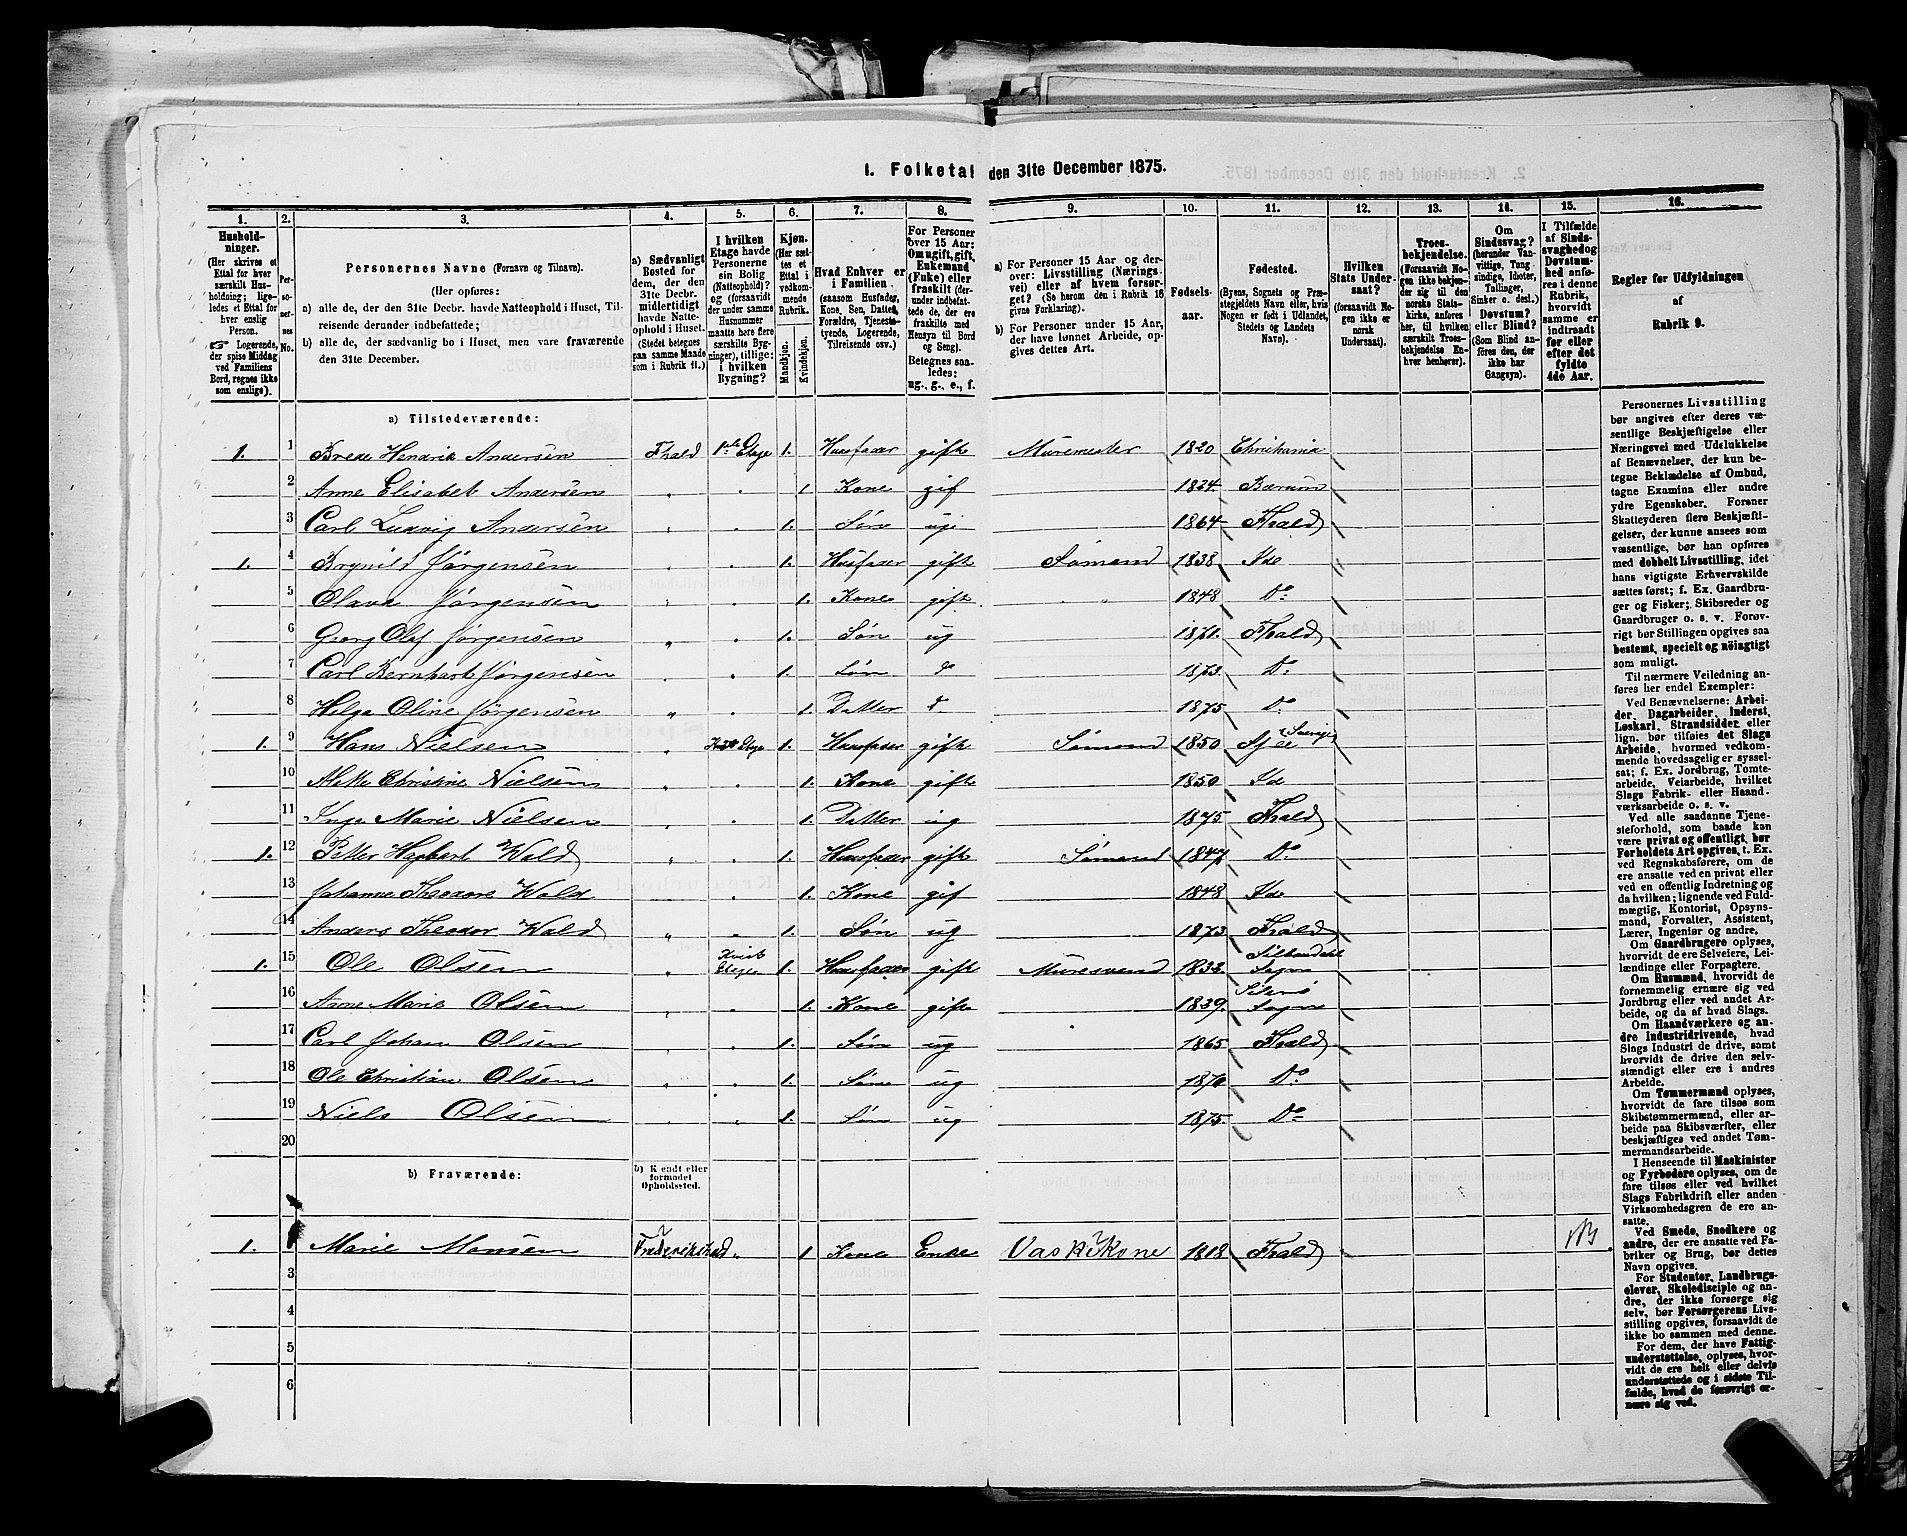 1. Folketal den 31te December 1875.
1.
Husholdninger.
(Her skrives et
Ettal for hver
særskilt Husholdning; ligeledes et Ettal
for hver
enslig
Person.
☞ Logerende,
der spise Middag
ved Familiens
Bord, regnes ikke
som enslige).
2.
Personernes No.
3.
Personernes Navne (Fornavn og Tilnavn).
(Her opføres:
a) alle de, der den 31te Decbr. havde Natteophold i Huset, Tilreisende derunder indbefattede;
b) alle de, der sædvanlig bo i Huset, men vare fraværende
den 31te December.
4.
a) Sædvanligt
Bosted for
dem, der den
31te Decbr.
midlertidigt
havde Natteophold i Huset.
(Stedet betegnes
paa samme Maade
som i Rubrik 11.)
5.
I hvilken
Etage havde
Personerne
sin Bolig
(Natteophold)?
og (forsaavidt
der under samme
Husnummer
maatte høre flere
særskilte Bygninger), tillige:
i hvilken
Bygning?
6.
Kjøn.
(Her sættes et
Ettal i
vedkommende
Rubrik.
Mandkjøn.
Kvindekjøn.
7.
Hvad Enhver er
i Familien
(saasom Husfader,
Kone, Søn, Datter,
Forældre, Tjenestetyende, Logerende,
Tilreisende osv.)
8.
For Personer
over 15 Aar:
Om ugift, gift,
Enkemand
(Enke) eller
fraskilt (derunder indbefattede de, der ere
fraskilte med
Hensyn til Bord
og Seng).
Betegnes saaledes:
ug., g., e., f.
9.
a) For Personer 15 Aar og derover: Livsstilling (Næringsvei) eller af hvem forsørget? (Se herom den i Rubrik 16
givne Forklaring).
b) For Personer under 15 Aar,
der have lønnet Arbeide, opgives dettes Art.
10.
Fødselsaar.
11.
Fødested.
(Byens, Sognets og Præstegjeldets Navn eller, hvis
Nogen er født i Udlandet,
Stedets og Landets
Navn).
12.
Hvilken
Stats Undersaat?
(forsaavidt Nogen ikke er
norsk
Undersaat).
13.
Troesbekjendelse.
(Forsaavidt Nogen ikke bekjender sig til den
norske Statskirke, anføres
her, til hvilken
særskilt Troesbekjendelse Enhver henhører).
14.
Om
Sindssvag?
(herunder Vanvittige, Tungsindige, Idioter,
Tullinger,
Sinker o. desl.)
Døvstum?
eller Blind?
(Som Blind anføres den, der
ikke har
Gangsyn).
15.
I Tilfælde
af Sindssvaghed og
Døvstumhed anføres i denne
Rubrik,
hvorvidt
samme er
indtraadt
før eller
efter det
fyldte
4de Aar.
16.
Regler for Udfyldningen
af
Rubrik 9.
a) Tilstedeværende:
1. 1 Brede Hendrik Andersen Fhald 1ste Etage 1. Huusfader gifte Muremester 1820 Christiania
2 Anne Elisabet Andersen „ . 1 Kone gif 1824 Bærum
3 Carl Ludvig Andersen „ . 1. Søn ug 1864 Fhald
1. 4 Brynild Jørgensen „ . 1. Husfader gifte Sømand 1838 Ide
5 Olava Jørgensen „ . 1. Kone gift „ 1848 Do
6 Georg Olaf Jørgensen „ . 1. Søn ug 1871. Fhald
7 Carl Bernhart Jørgensen „ . 1. Søn d 1873. Do
8 Helga Oline Jørgensen „ . 1. Datter d 1875 Do
1. 9 Hans Nielsen „ Etage 1. Huusfader gifte Sømand 1850 Sverige
10 Mette Christine Nielsen „ . 1. Kone gifte 1850 Ide
11 Inga Marie Nielsen „ . 1. Datter ug 1875 Fhald
1. 12 Petter Hagbart Wold „ . 1. Huusfader gifte Sømand 1847 Do
13 Johanne Theodore Wold . 1. Kone gif 1848 Ide
14 Anders Theodor Wold „ . 1. Søn ug 1873 Fhald
1. 15 Ole Olsen „ Kvist Etage 1. Huusfader gifte Muresvend 1833 Sogn
16 Anne Marie Olsen „ . 1. Kone gifte 1839. Sogn
17 Carl Johan Olsen „ . 1. Søn ug 1865 Fhald
18 Ole Christian Olsen „ . 1. Søn ug 1870 Do
19 Niels Olsen „ „ 1. Søn ug 1875. Do
20
b) Fraværende:
b) Kjendt eller
formodet
Opholdssted.
1. Marie Monsen Frederikstad „ 1 Kone Enke Vaskekone 1818 Fhald
3
4
5
6
Personernes Livsstilling
bør angives efter deres væsentlige Beskjæftigelse eller
Næringsvei med Udelukkelse
af Benævnelser, der kun betegne Beklædelse af Ombud,
tagne Examina eller andre
ydre Egenskaber. Forener
Skatteyderen flere Beskjæftigelser, der kunne ansees som
væsentlige, bør han opføres
med dobbelt Livsstilling, idet
hans vigtigste Erhvervskilde
sættes først; f. Ex. Gaardbruger og Fisker; Skibsreder og
Gaardbruger o. s. v. Forøvrigt bør Stillingen opgives saa
bestemt, specielt og nöiagtigt
som muligt.
Til nærmere Veiledning anføres her endel Exempler:
Ved Benævnelserne: Arbeider, Dagarbeider, Inderst,
Løskarl, Strandsidder eller
lign. bør tilføies det Slags
Arbeide, hvormed vedkommende hovedsagelig er sysselsat; f. Ex. Jordbrug, Tomtearbeide, Veiarbeide, hvilket
Slags Fabrik- eller Haandværksarbeide o. s. v.
Ved alle saadanne Tjenesteforhold, som baade kan
være privat og offentligt, bør
Forholdets Art opgives, t. Ex.
ved Regnskabsførere, om de
ere ansatte ved en privat eller
ved en offentlig Indretning og
da hvilken; lignende ved Fuldmægtig, Kontorist, Opsynsmand, Forvalter, Assistent,
Lærer, Ingeniør og andre.
Om Gaardbrugere oplyses,
hvorvidt de ere Selveiere, Leilændinge eller Forpagtere.
Om Husmænd, hvorvidt de
fornemmelig ernære sig ved
Jordbrug eller ved andet Arbeide, og da af hvad Slags.
Om Haandværkere og andre Industridrivende, hvad
Slags Industri de drive, samt
hvorvidt de drive den selvstændigt eller ere i andres
Arbeide.
Om Tømmermænd oplyses,
hvorvidt de fare tilsøs som
Skibstømmermænd, eller arbeide paa Skibsværfter, eller
beskjæftiges ved andet Tømmermandsarbeide.
I Henseende til Maskinister
og Fyrbødere oplyses, om de
fare tilsøs eller ved hvilket
Slags Fabrikdrift eller anden
Virksomhedsgren de ere ansatte.
Ved Smede, Snedkere og
andre, der ere ansatte ved Fabriker og Brug, bør dettes
Navn opgives.
For Studenter, Landbrugselever, Skoledisciple og andre, der ikke forsørge sig
selv, bør Forsørgerens Livsstilling opgives, forsaavidt de
ikke bo sammen med denne.
For dem, der have Fattigunderstøttelse, oplyses, hvorvidt de ere helt eller delvis
understøttede og i sidste Tilfælde, hvad de forøvrigt ernære sig ved.